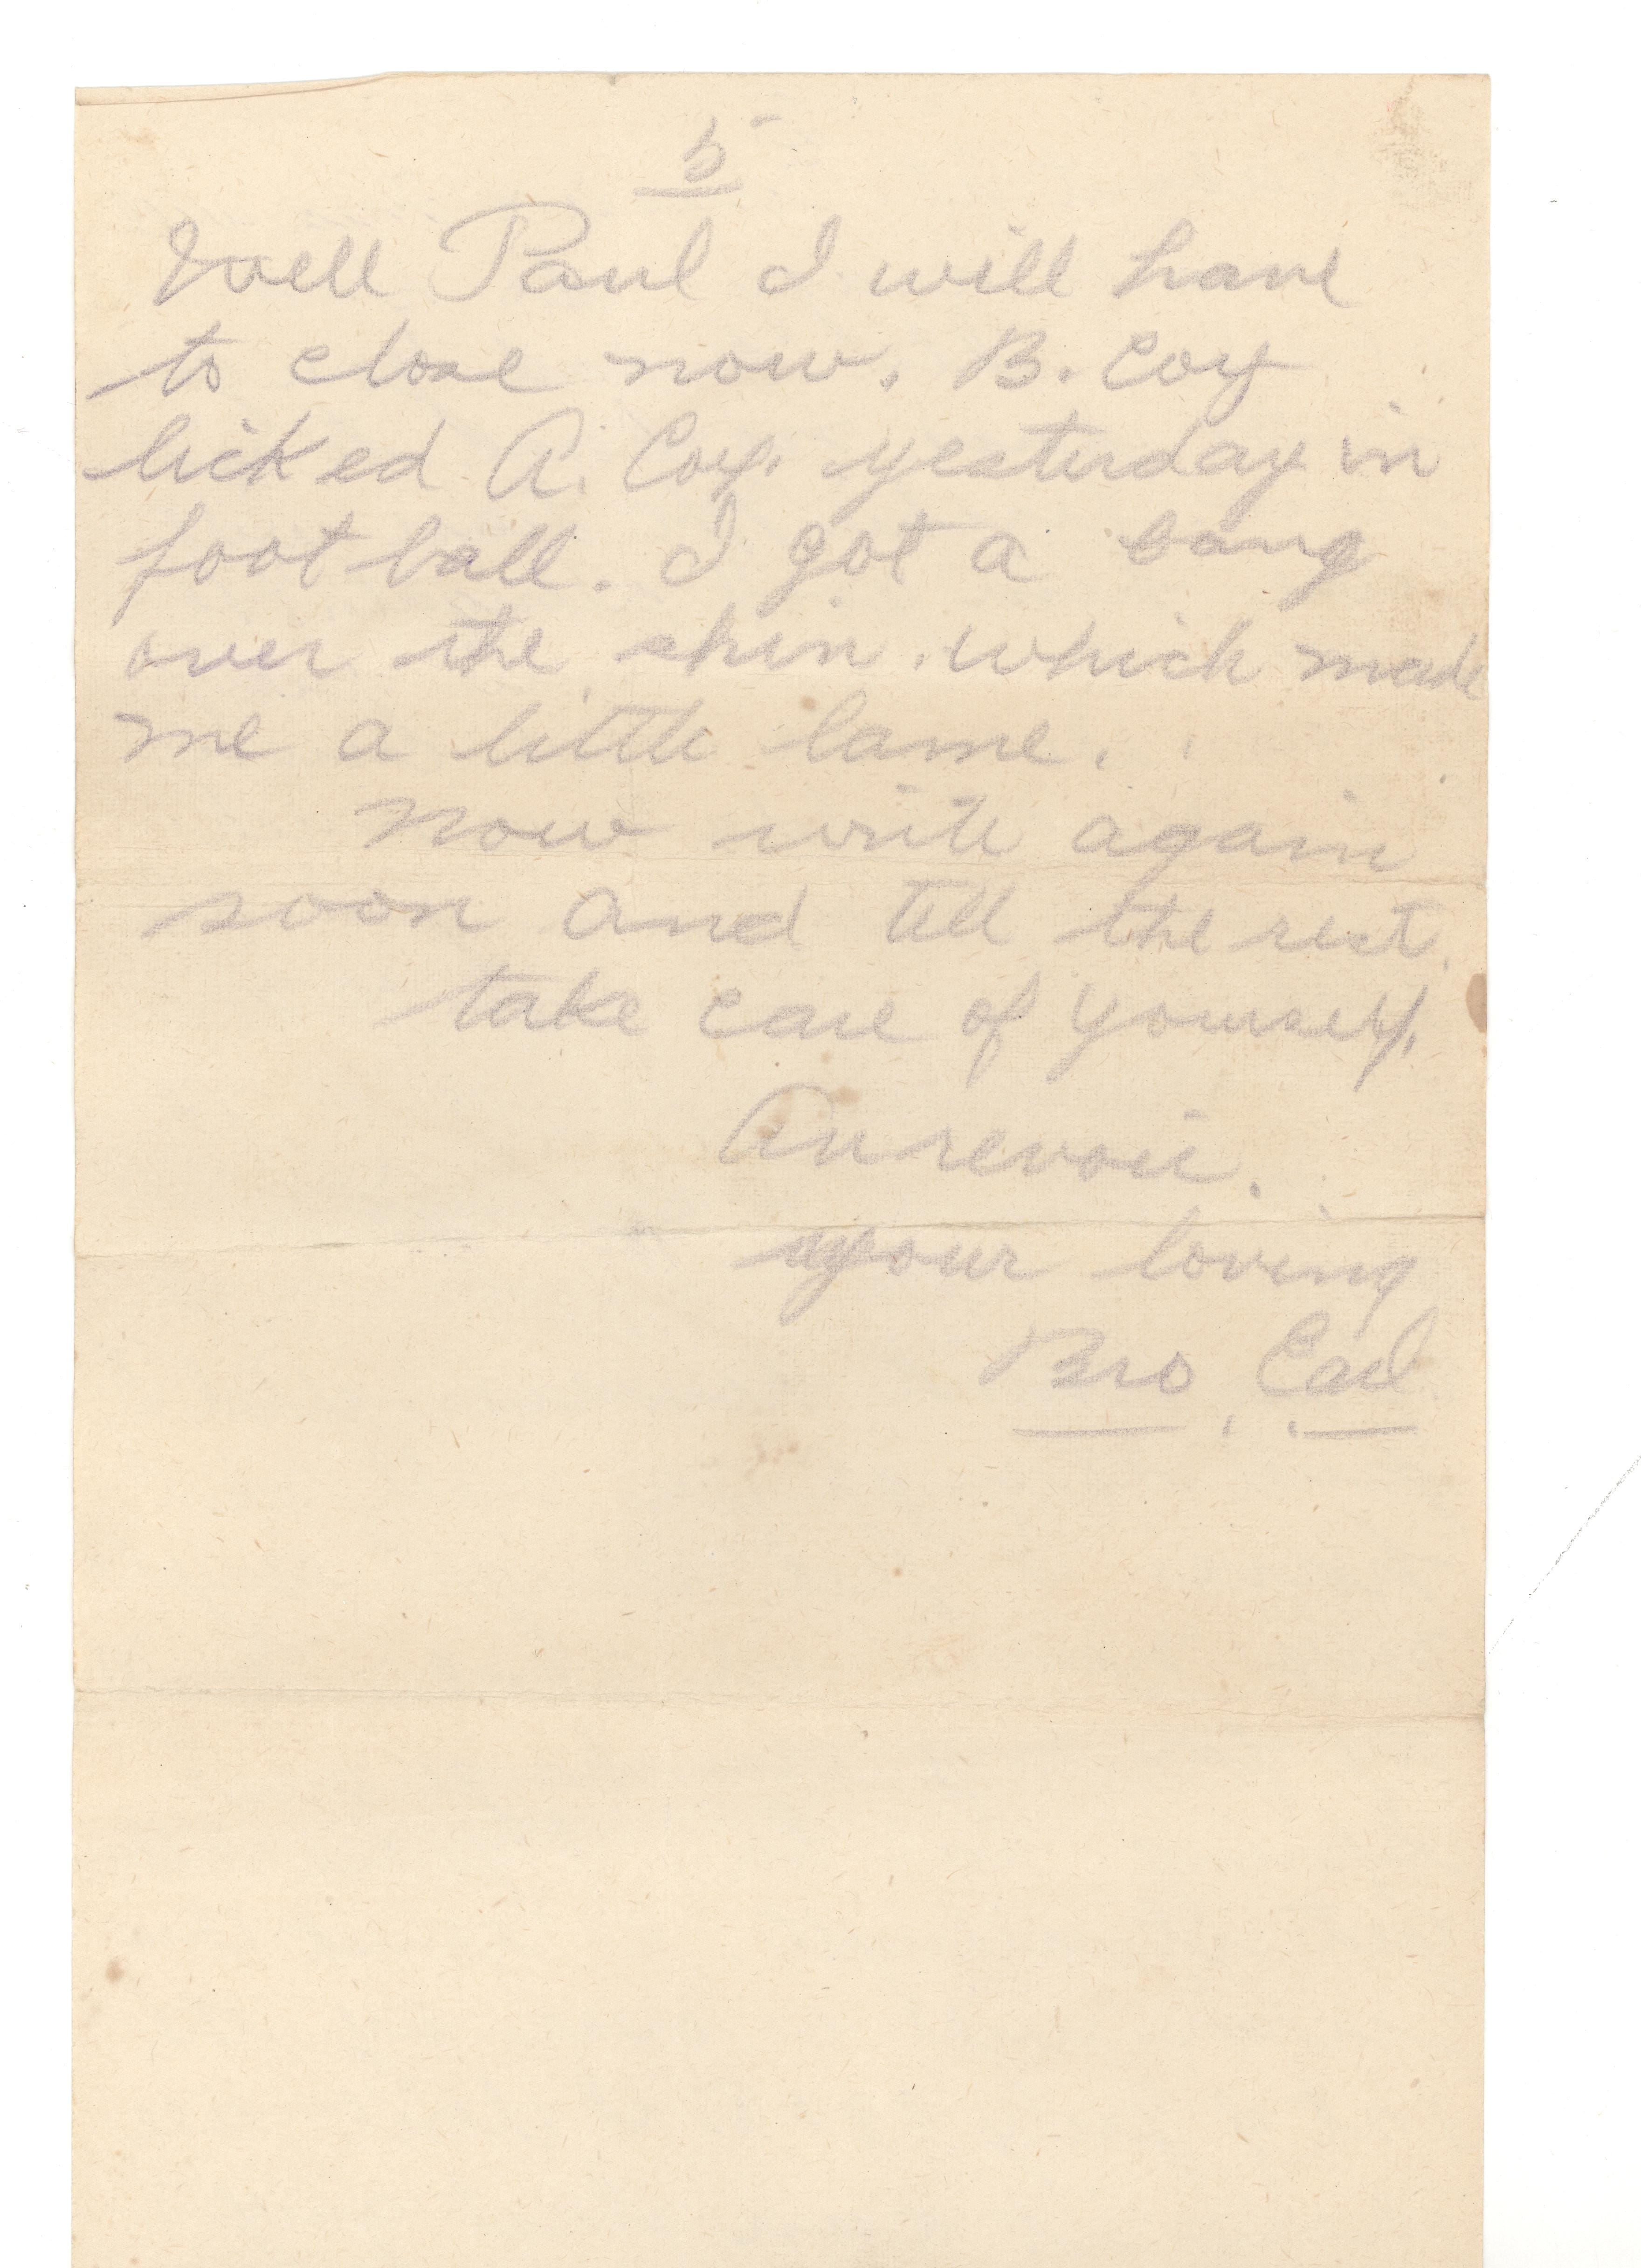 5
Well Paul I will have
to close now. B. Coy
licked A. Coy. yesterday in
foot ball. I got a bang
over the shin. which made
me a little lame.
now write again
soon and tell the rest
take care of yourself.
Au revoir.
your loving
Bro. Earl